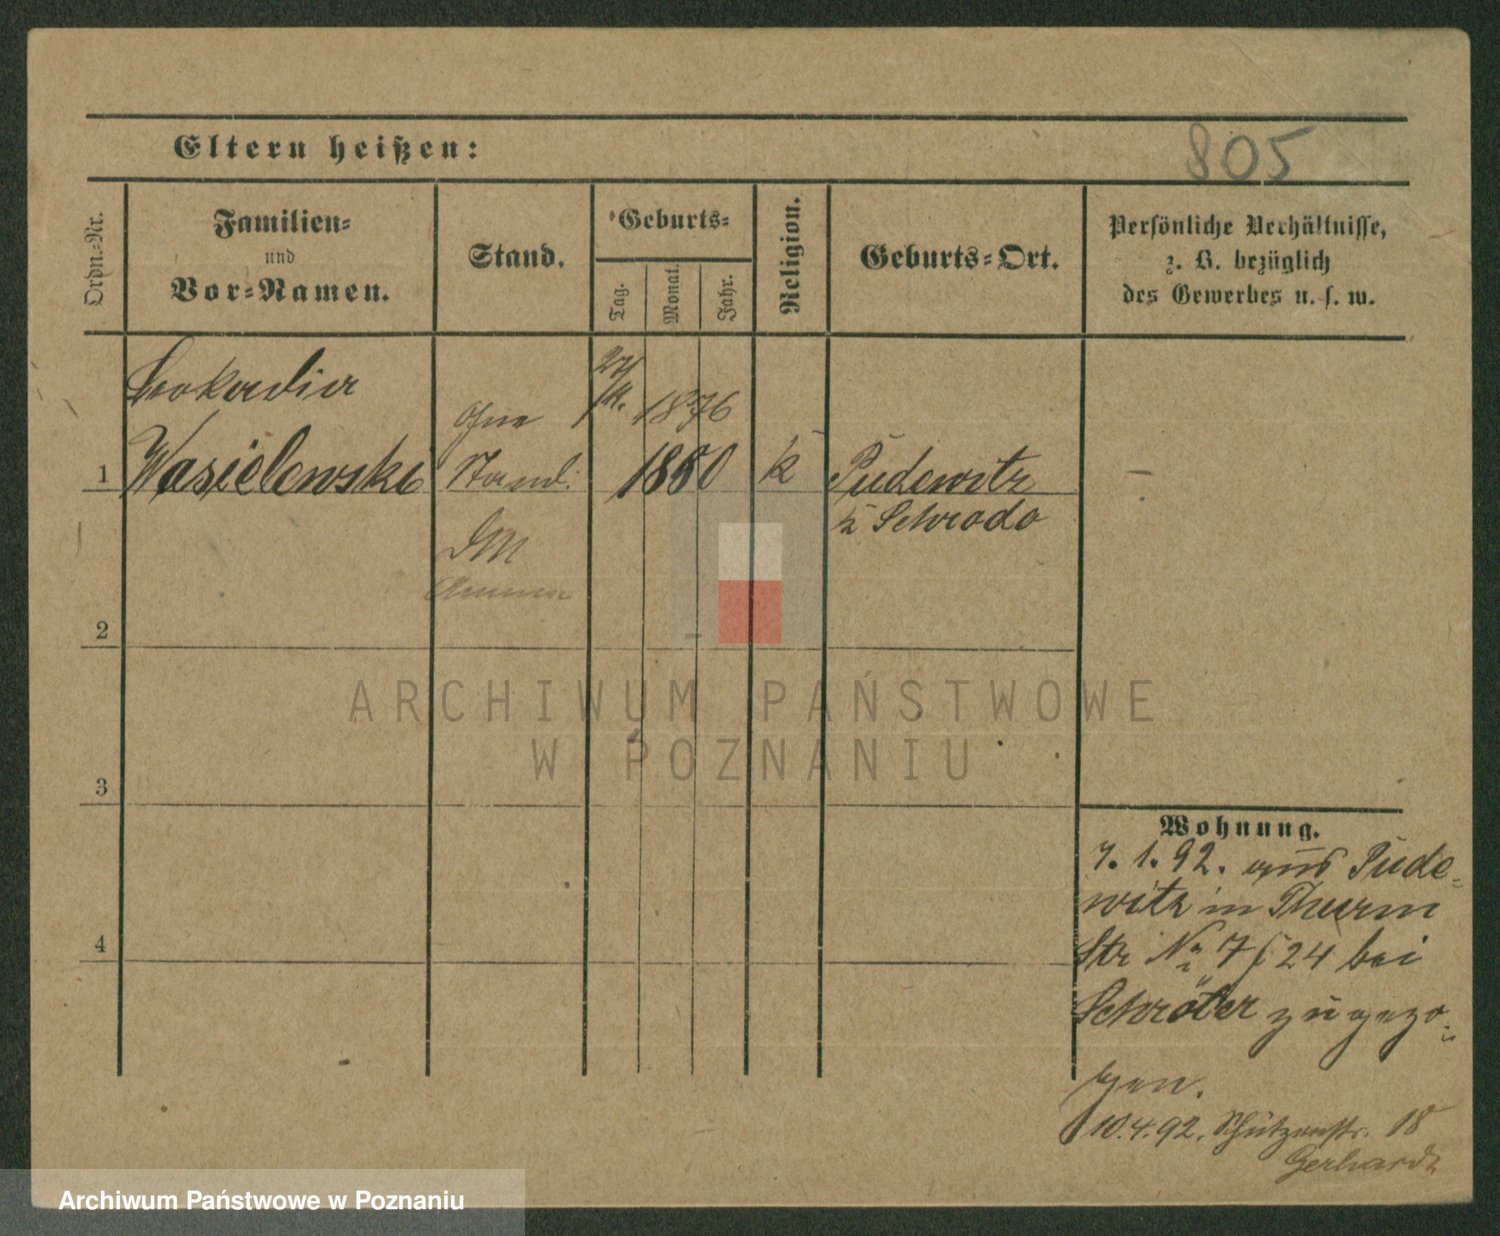 Eltern heißen:
805
Ordn.-Nr.
Familien-
und
Vor-Namen.
Stand.
Geburts-
Tag.
Monat.
Jahr.
Religion.
Geburts-Ort.
Persönliche Verhältnisse,
z. B. bezüglich
des Gewerbes u. s. w.
Leokadia
ohne
1876
1
Wasielewski
Stand.
1850
k
Pudewitz
–
Schroda
DM
2
3
4
Wohnung.
7. 1. 92. aus Pude-
witz in Thurm
Str No 7 / 24 bei
Schröter zugezo-
gen.
10.4.92. Schützenstr. 18
Gerhardt
ARCHIWUM PAŃSTWOWE
W POZNANIU
Archiwum Państwowe w Poznaniu